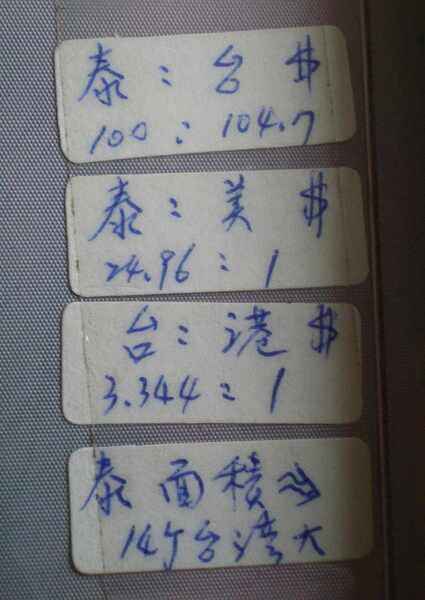 泰：台 $
100：104.7
泰：美 $
24.96：1
台：港 $
3.344：1
泰面積≈
14个台湾大